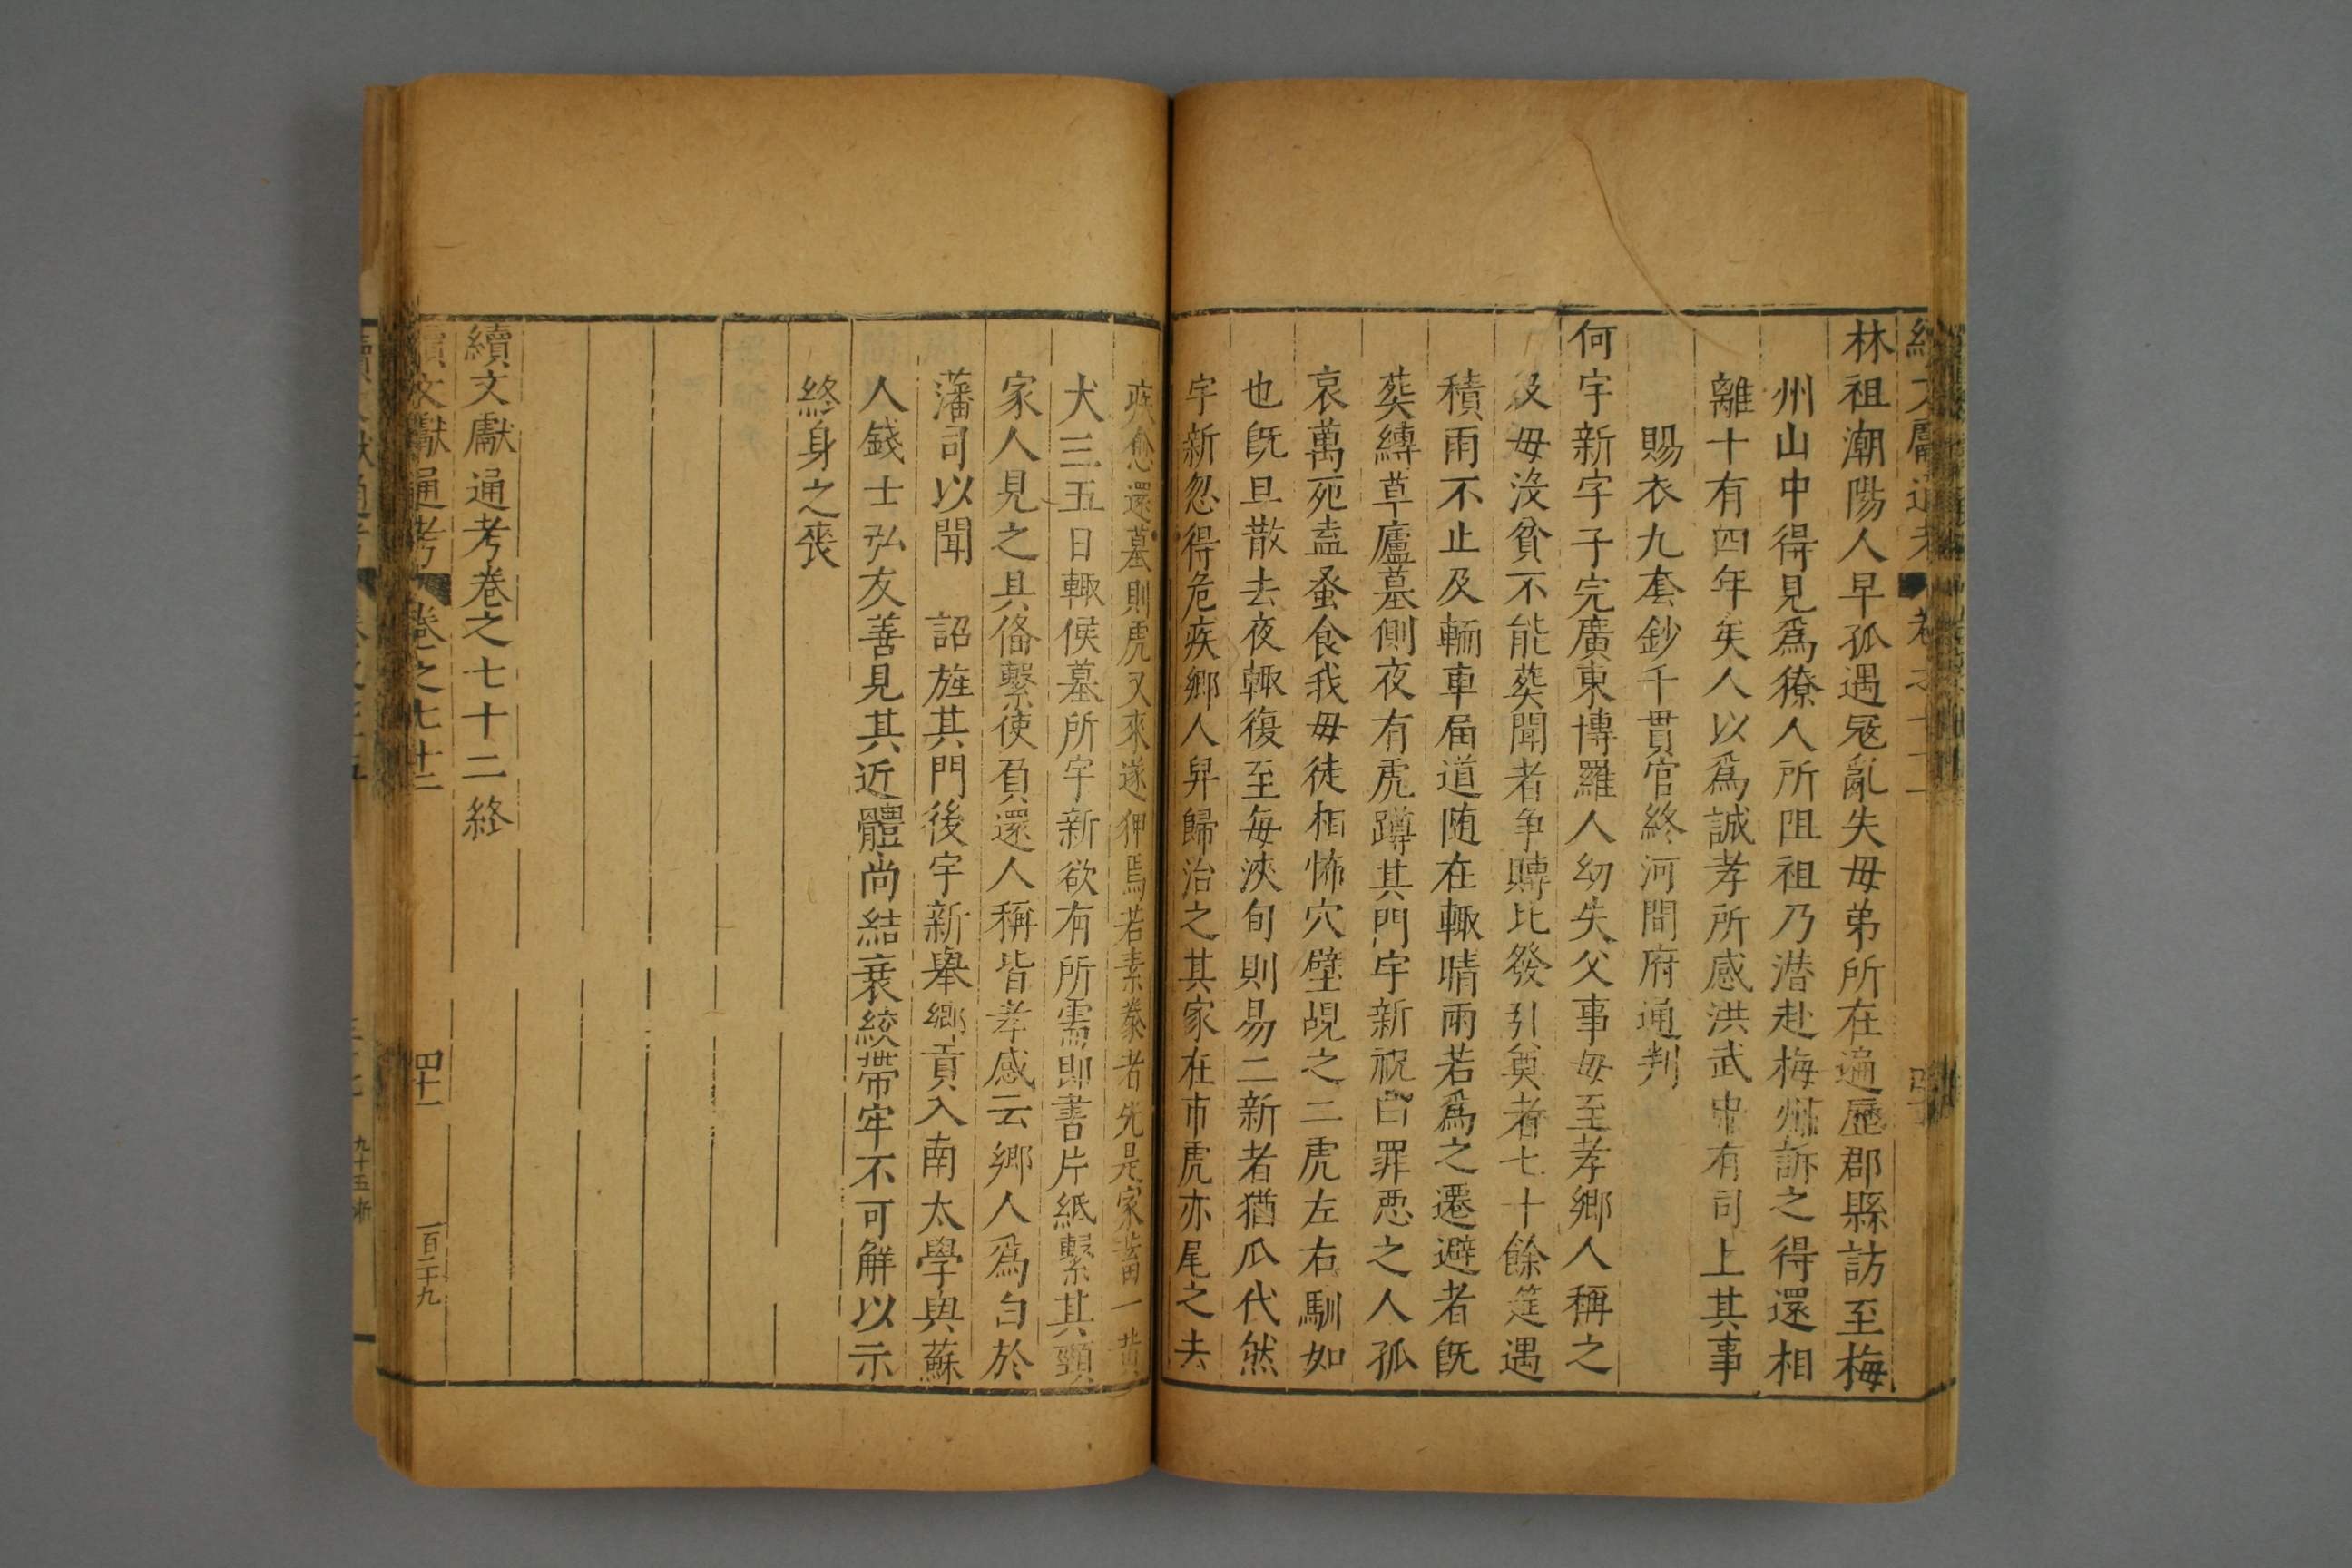 林祖潮陽人早孤遇冦亂失毋弟所在遍歷郡縣訪至梅
州山中得見爲獠人所阻祖乃潜赴梅州訴之得還相
離十有四年矣人以爲誠孝所感洪武中有司上其事
賜衣九套鈔千貫官終河間府通判
何宇新字子完廣東博羅人幼失父事毋至孝鄉人稱之
及毋沒貧不能葬聞者争賻比發引奠者七十餘筵遇
積雨不止及輀車届道随在輙晴雨若爲之遷避者旣
葬縛草廬墓側夜有虎蹲其門宇新祝曰罪惡之人孤
哀萬死盍蚤食我毋徒相怖穴壁覘之二虎左右馴如
也旣旦散去夜輙復至每浹旬則易二新者猶瓜代然
宇新忽得危疾鄉人舁歸治之其家在市虎亦尾之去
疾愈還墓則虎又來遂狎焉若素豢者先是家畜一黄
犬三五日輙候墓所宇新欲有所需即書片紙繫其頸
家人見之具脩繫使負還人稱皆孝感云鄉人爲白於
藩司以聞 詔旌其門後宇新舉鄉貢入南太學與蘇
人錢士弘友善見其近體尚結衰絞帶牢不可解以示
終身之喪
續文獻通考卷之七十二終
續文獻通考 卷之七十二 四十一 一百二十九